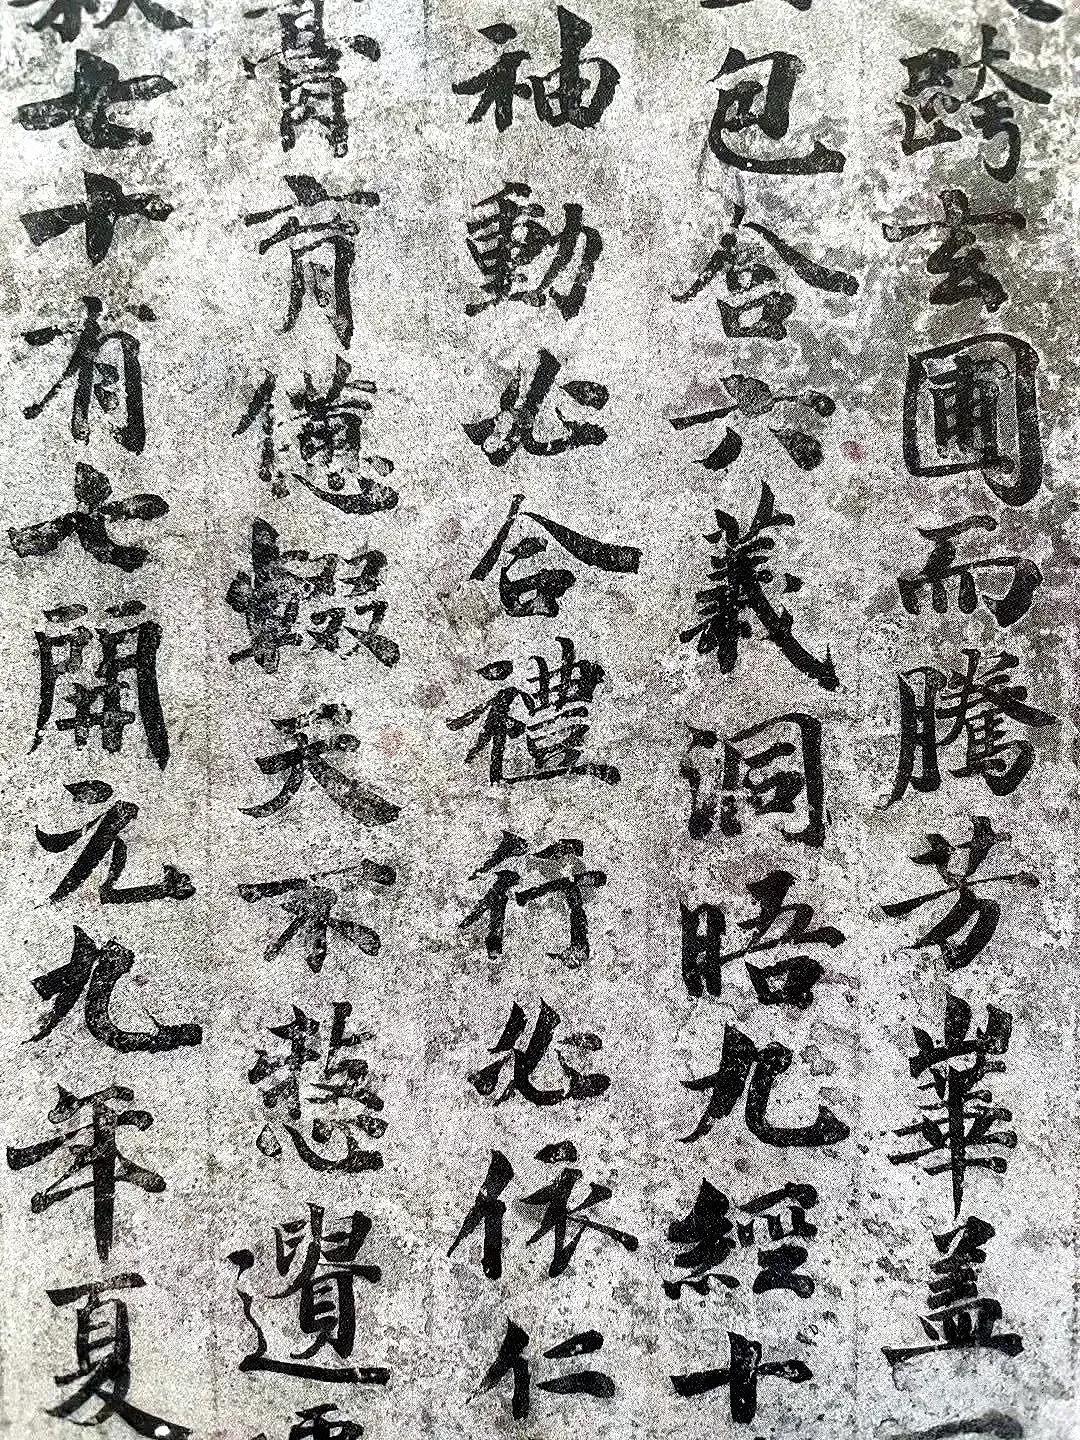 跨玄圃而騰芳華盖
包含六義洞晤九經十
袖動必合禮行必依仁
膏肓輟天不憗遺
秋七十有七開元九年夏